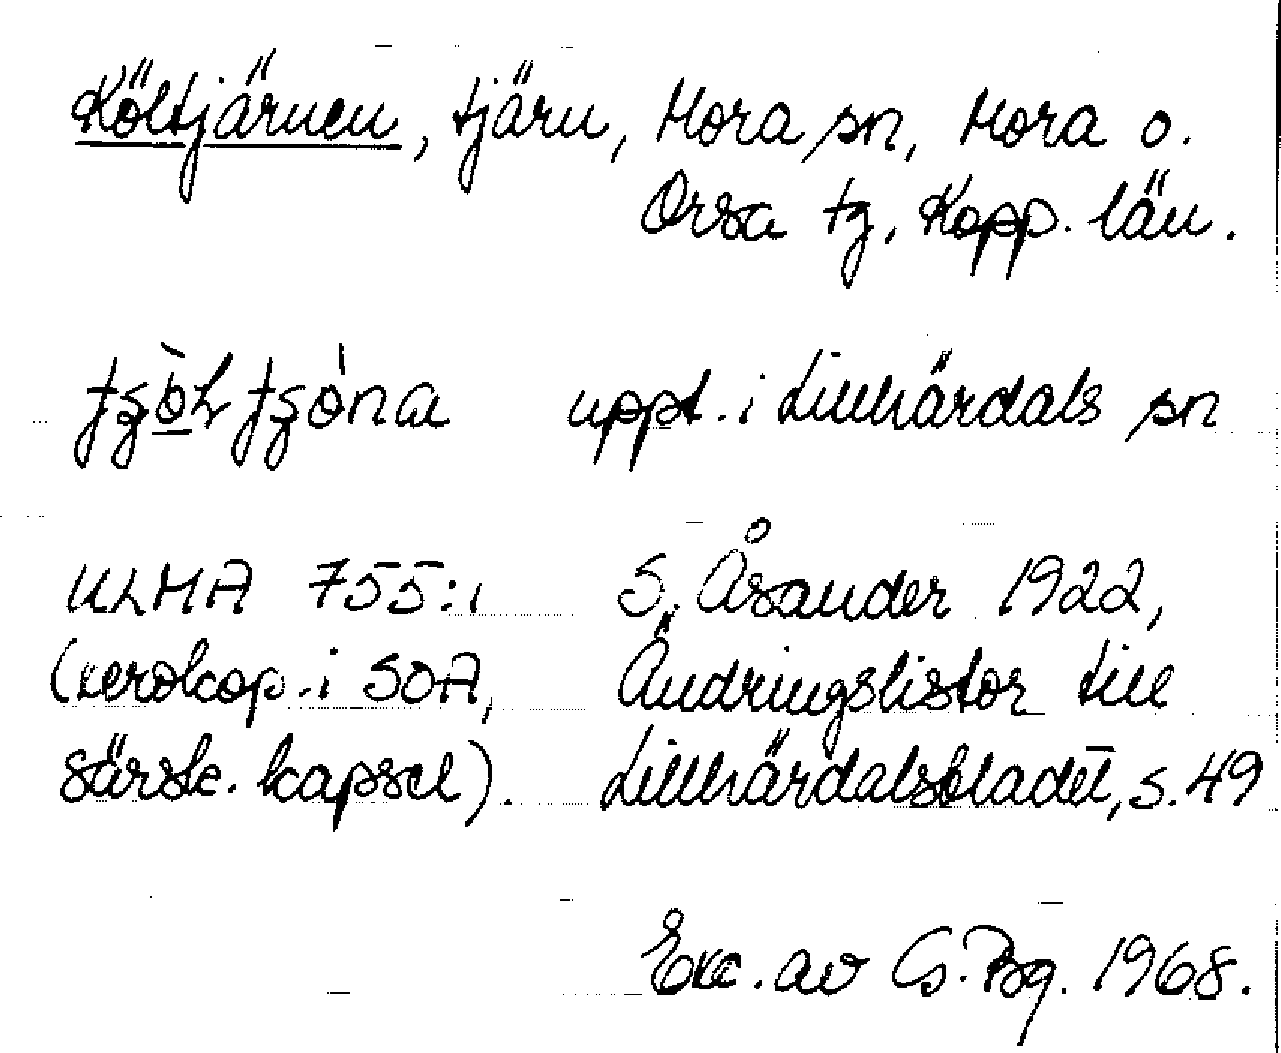 Költjärnen, tjärn, Mora sn, Mora o.
Orsa tg, Kopp. län.
uppt. i Lillhärdals sn
ULMA 755:1 S. Åsander 1922,
(xerokop. i SOA, Ändringslistor till
särsk. kapsel). Lillhärdalsbladet, s. 49
Exc. av G. Bg. 1968.